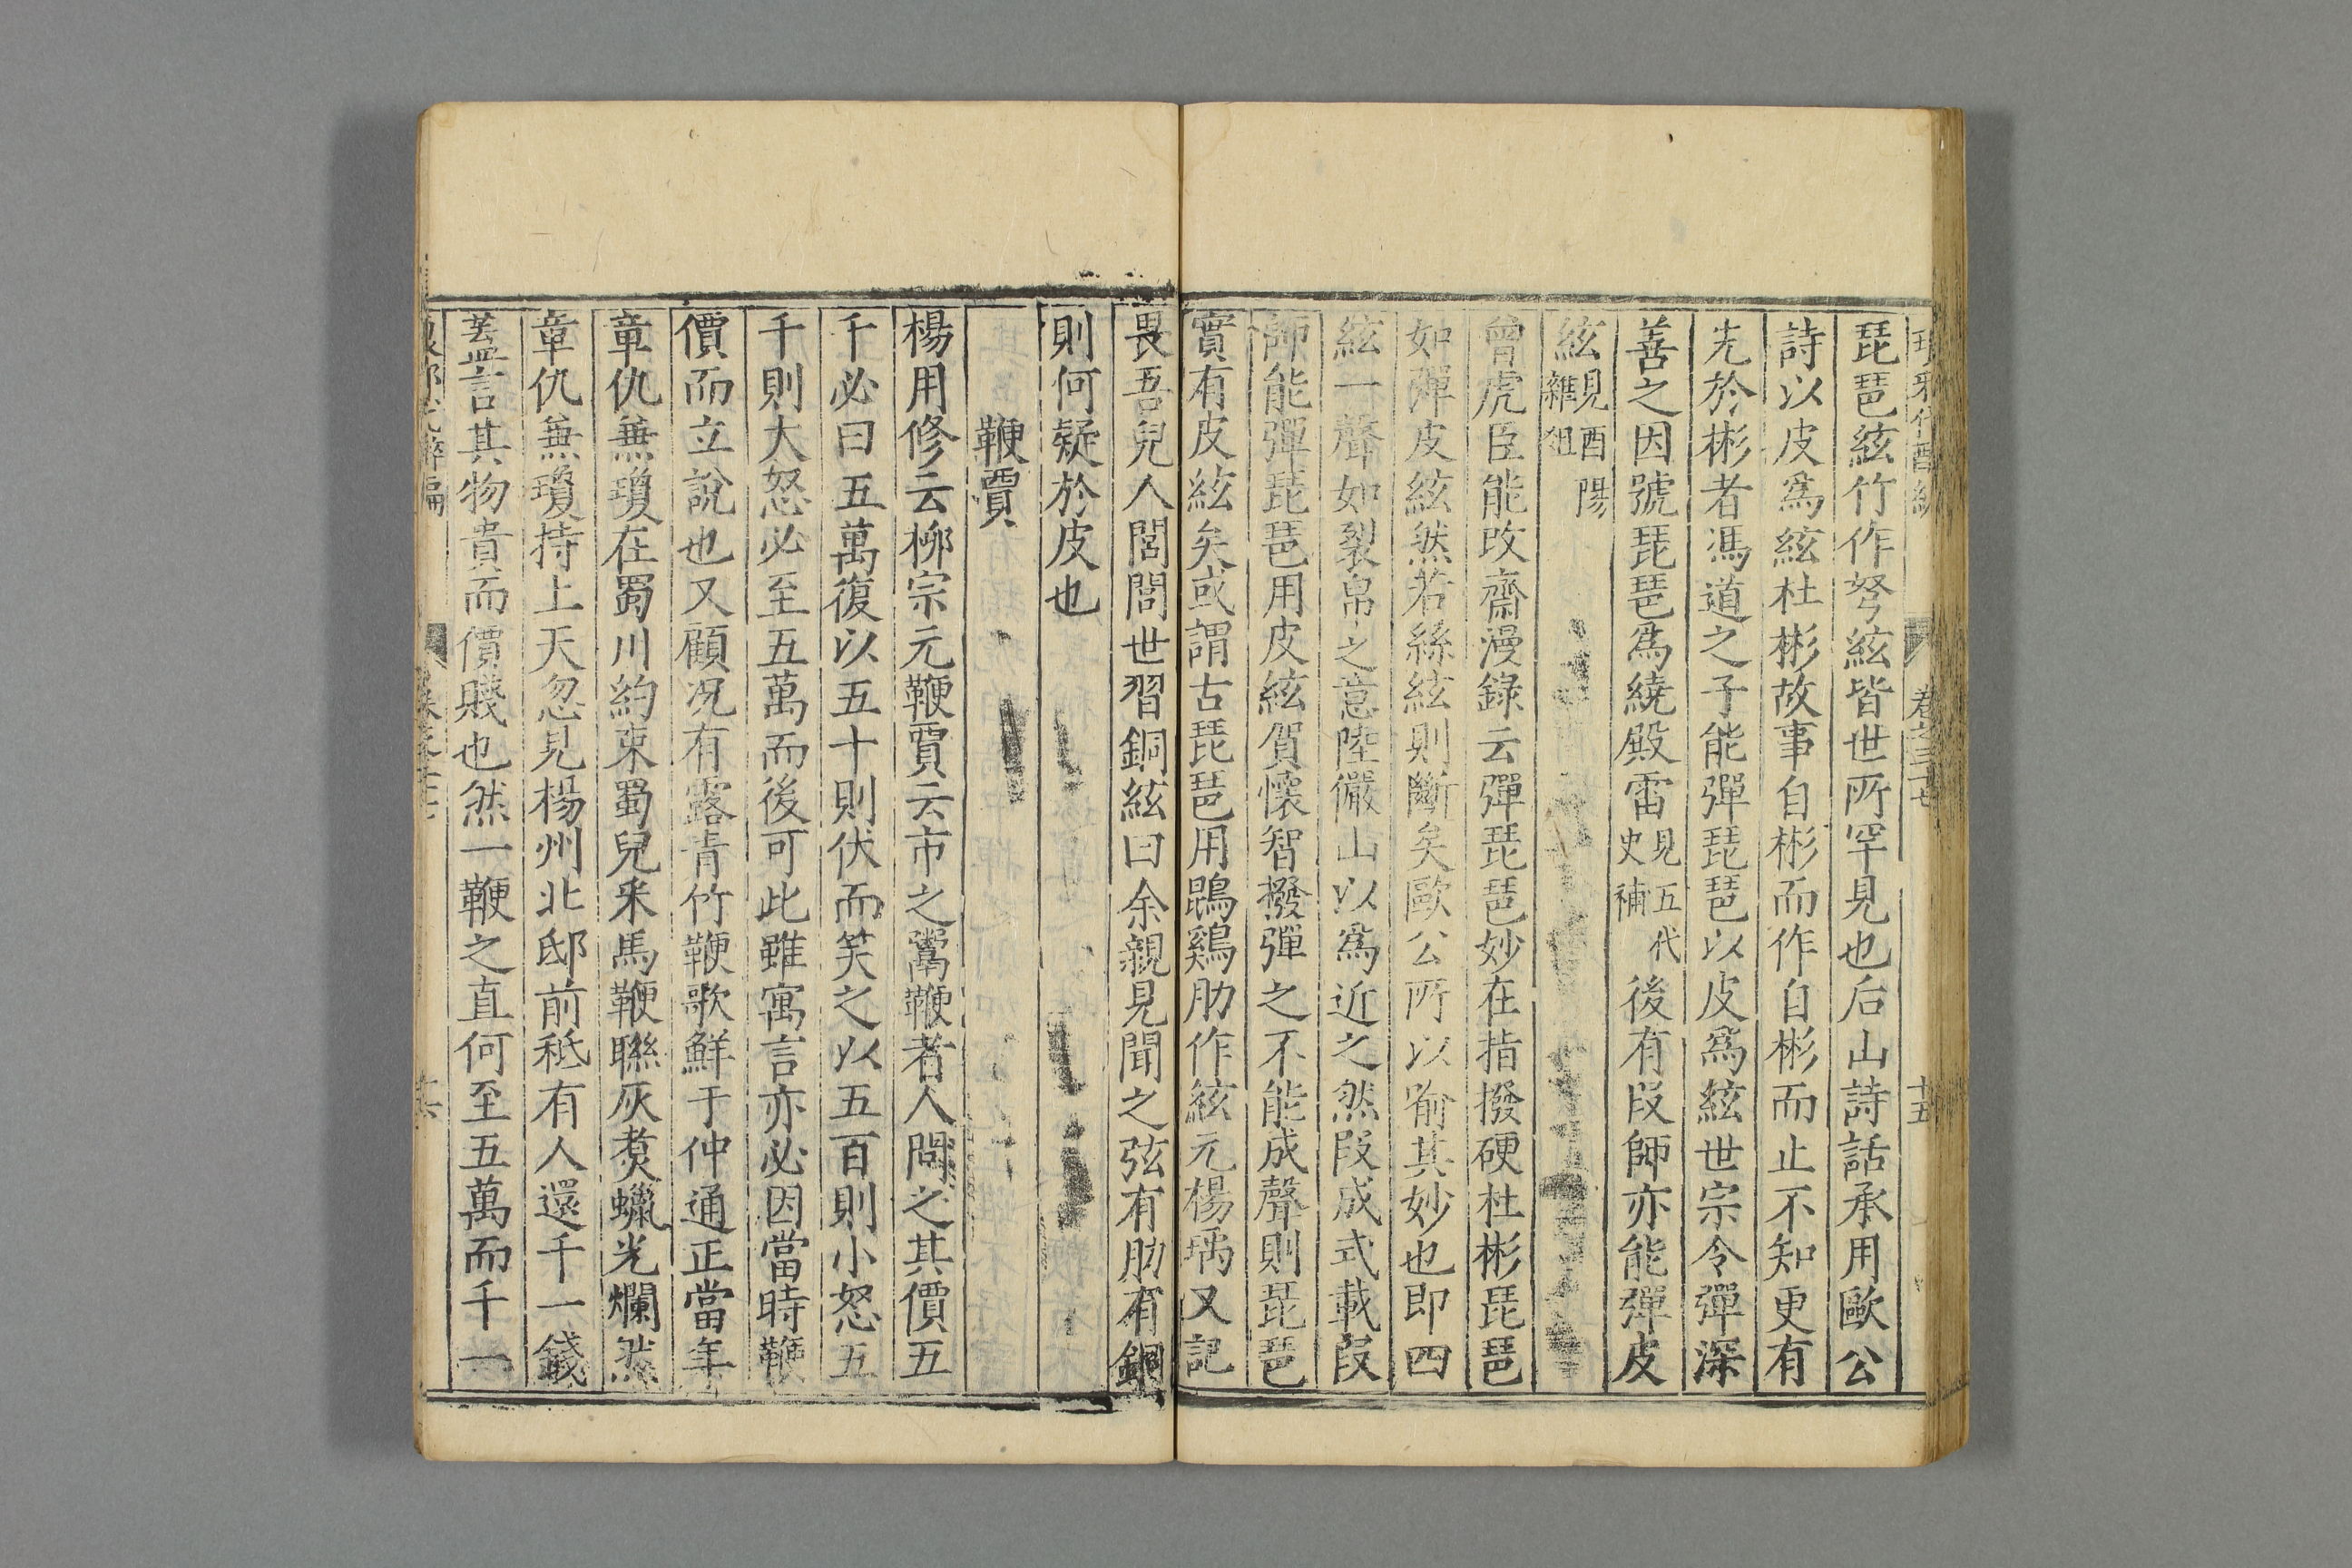 琵琶絃竹作弩絃皆世所罕見也后山詩話承用歐公
詩以皮爲絃杜彬故事自彬而作自彬而止不知更有
先於彬者馮道之子能彈琵琶以皮爲絃世宗令彈深
善之因號琵琶爲繞殿雷見五代史補後有段師亦能彈皮
絃見酉陽雜俎
曾虎臣能改齋漫錄云彈琵琶妙在指撥硬杜彬琵琶
如彈皮絃然若絲絃則斷矣歐公所以喻其妙也即四
絃一聲如裂帛之意陸儼山以爲近之然段成式載段
師能彈琵琶用皮絃賀懷智撥彈之不能成聲則琵琶
實有皮絃矣或謂古琵琶用鵾鷄肋作絃元楊瑀又記
畏吾兒人閭閭世習銅絃曰余親見聞之弦有肋有銅
則何疑於皮也
鞭賈
楊用修云柳宗元鞭賈云市之鬻鞭者人問之其價五
千必曰五萬復以五十則伏而笑之以五百則小怒五
千則大怒必至五萬而後可此雖寓言亦必因當時鞭
價而立說也又顧况有露青竹鞭歌鮮于仲通正當年
章仇兼瓊在蜀川約束蜀兒采馬鞭聯灰煑蠟光爛然
章仇兼瓊持上天忽見楊州北邸前秪有人還千一錢
葢言其物貴而價賤也然一鞭之直何至五萬而千一